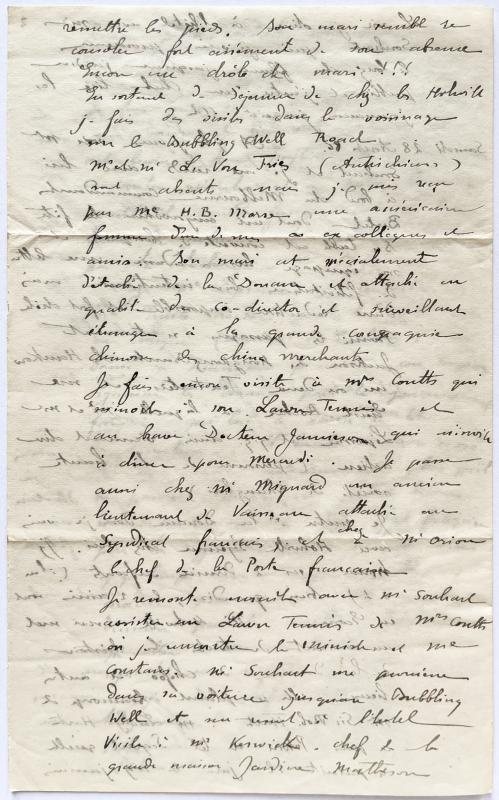 remettre les pieds. Son mari semble se
consoler fort aisément de son absence
Encore un drôle de mari !!!
En sortant de déjeuner de chez les Holwill
je fais des visites dans le voisinage
sur le Bubbling Well Road
Mr et Me Von Fries (Autrichiens)
sont absents mais je suis reçu
par Me H. B. Morse une américaine
femme d'un de mes ex collègues et
amis. Son mari est spécialement
détaché de la Douane et attaché en
qualité de co-director et surveillant
étranger à la grande compagnie
chinoise des china merchants
Je fais encore visite à Mrs Coutts qui
m'invite à son Lawn Tennis et
au brave Docteur Jamieson qui m'invite
à diner pour mercredi. Je passe
aussi chez Mr Mignard un ancien
lieutenant de Vaisseau attaché au
Syndicat français et chez Mr Orion
l'chef de la Poste française
Je remonte ensuite avec Mr Souhart
assister au Lawn Tennis de Mrs Coutts
où je rencontre le Ministre et Me
Constans. Mr Souhart me promène
dans sa voiture jusqu'au Bubbling
Well et me remet à l'hotel
Visite à Mr Keswick. chef de la
grande maison Jardine Matheson